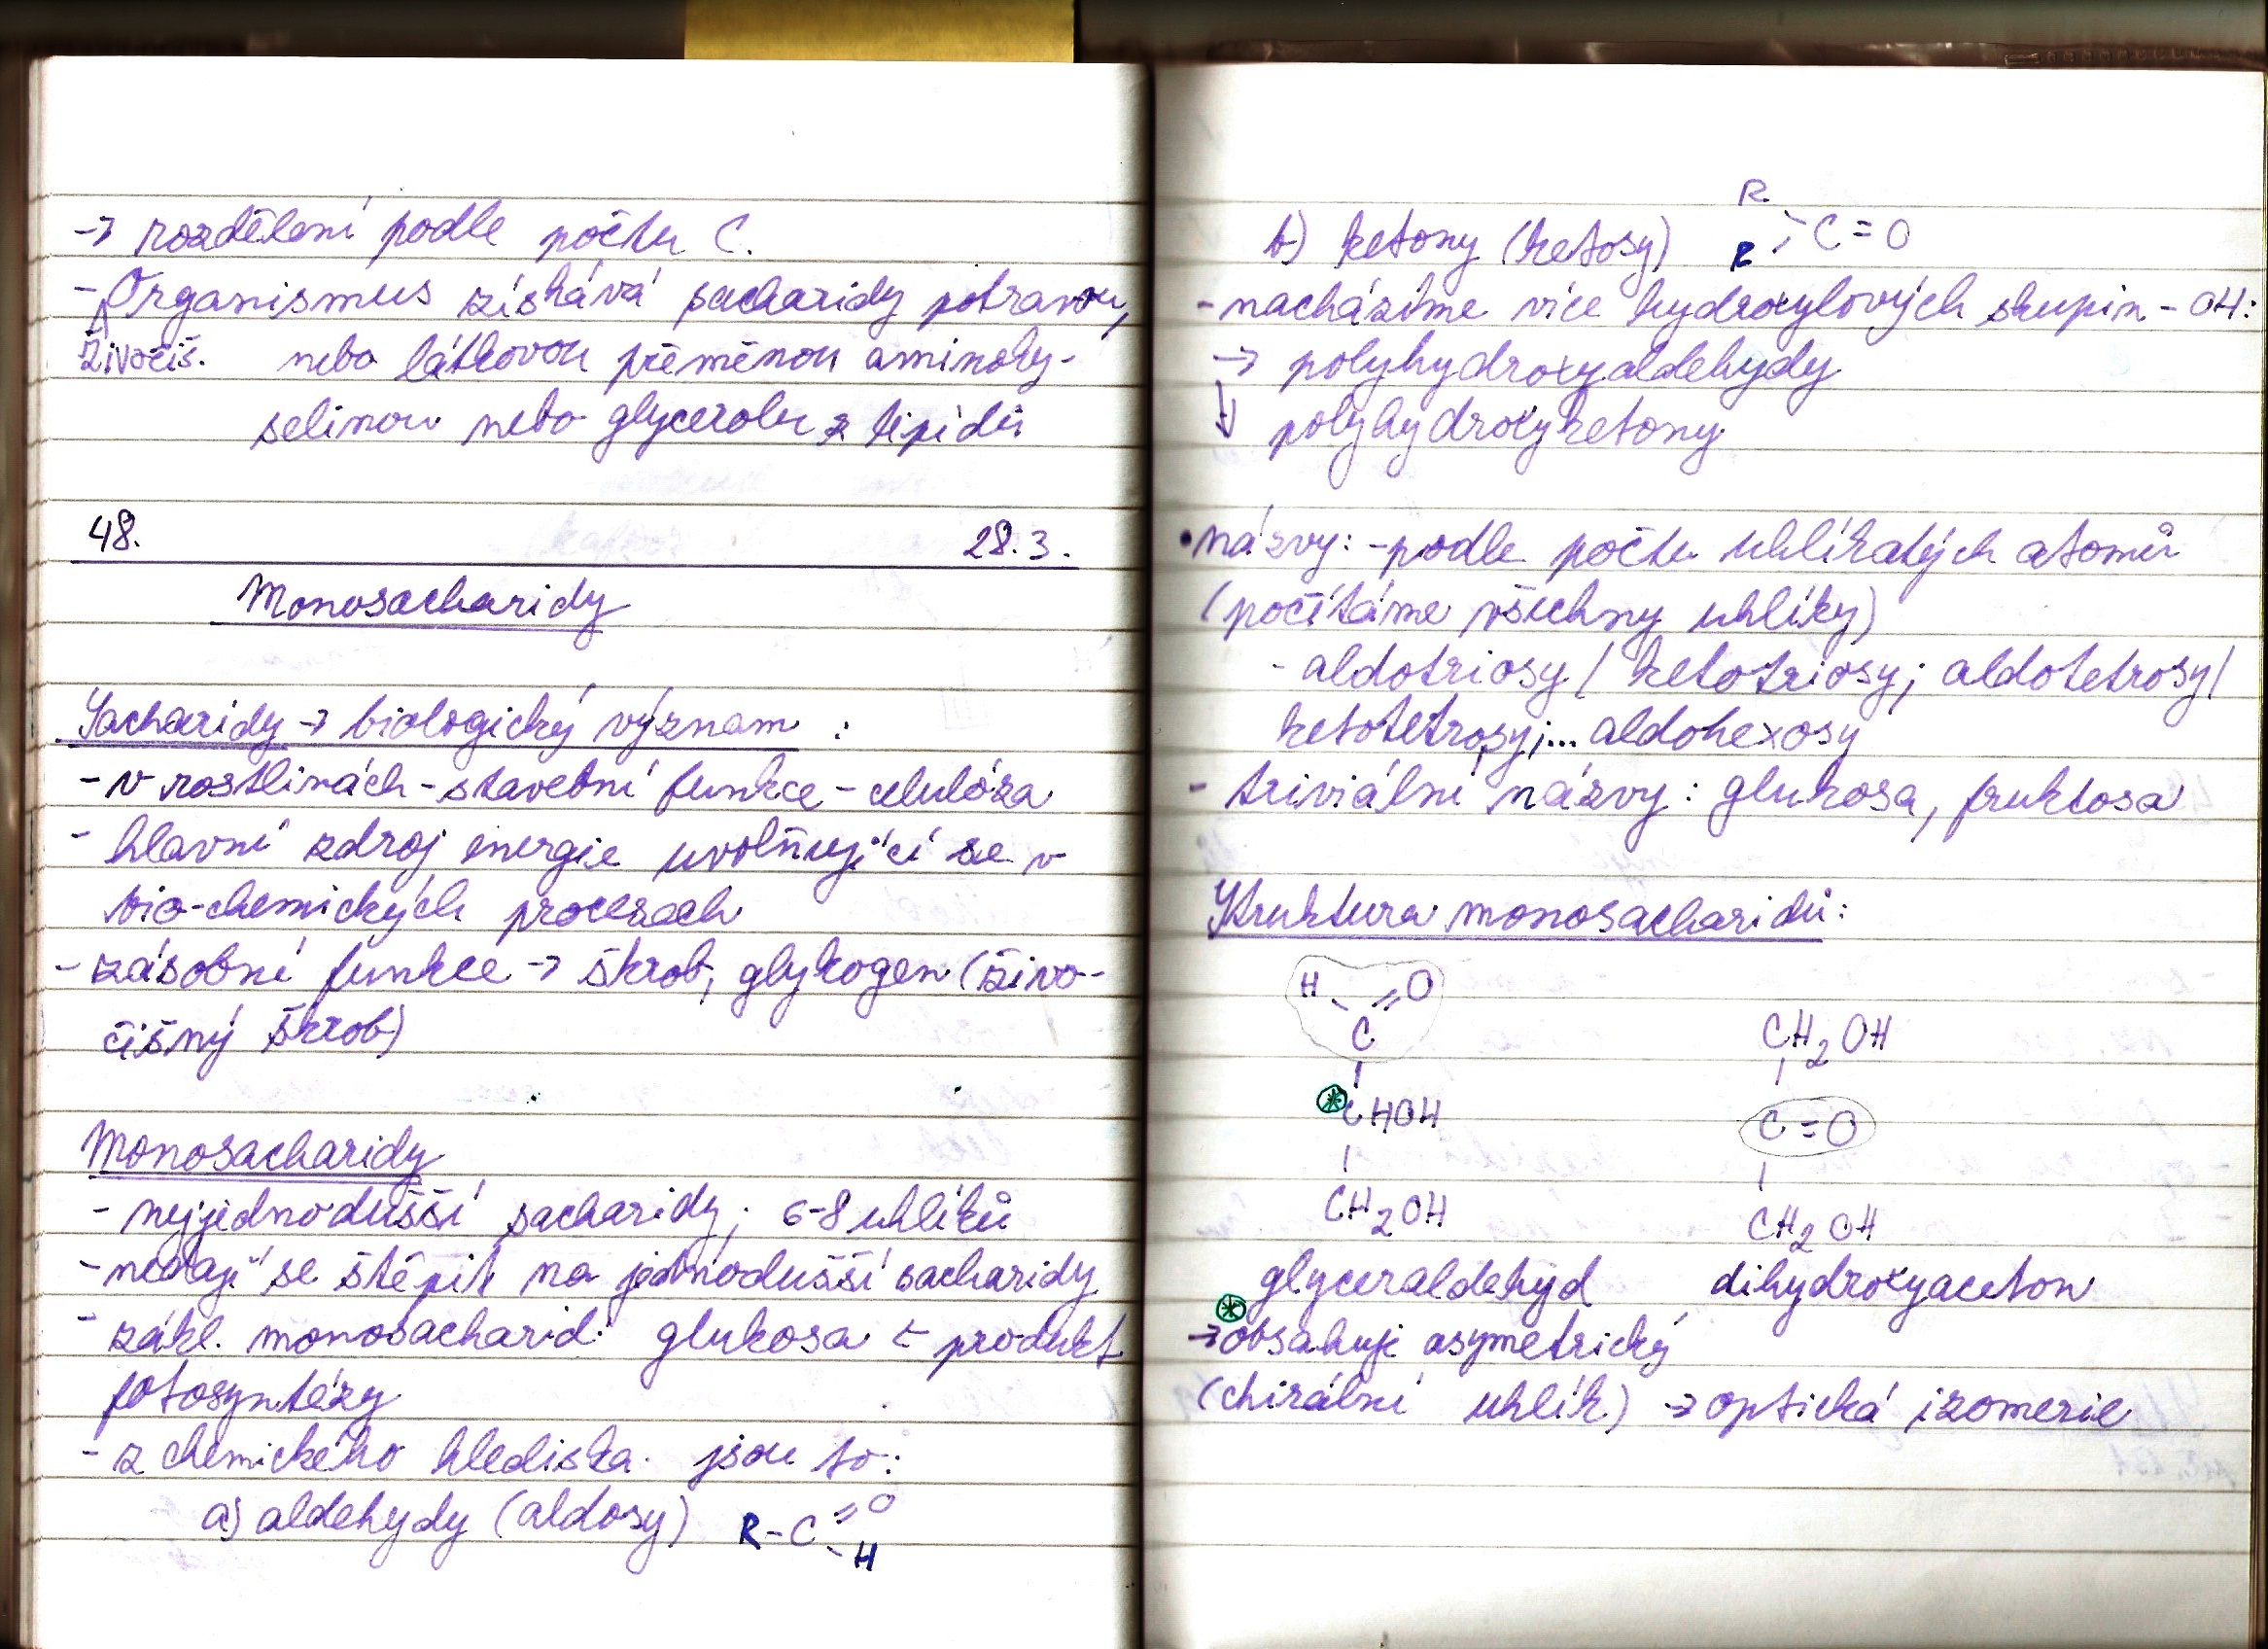 → rozdělení podle počtu C.
- Organismus získává sacharidy potravou,
živočiš. nebo látkovou přeměnou aminoky-
selinou nebo glycerolu z lipidů
48. 28.3.
Monosacharidy
Sacharidy → biologický význam :
- v rostlinách - stavební funkce - celulóza
- hlavní zdroj energie uvolňující se v
bio-chemických procesech
- zásobní funkce → škrob, glykogen (živo-
čišný škrob)
Monosacharidy
- nejjednodušší sacharidy; 6-8 uhlíků
- nedají se štěpit na jednodušší sacharidy
- zákl. monosacharid: glukosa ← produkt
fotosyntézy
- z chemického hlediska jsou to:
a) aldehydy (aldosy) R-C=O
H
R
b) ketony (ketosy) C=O
R
- nacházíme více hydroxylových skupin - OH:
→ polyhydroxyaldehydy
↓ polyhydroxyketony
• názvy: - podle počtu uhlíkatých atomů
(počítáme všechny uhlíky)
- aldotriosy / ketotriosy; aldotetrosy /
ketotetrosy;... aldohexosy
- triviální názvy: glukosa, fruktosa
Struktura monosacharidů:
H O
C CH2OH
* CHOH C=O
CH2OH CH2OH
glyceraldehyd dihydroxyaceton
*
→ obsahuje asymetrický
(chirální uhlík) → optická izomerie